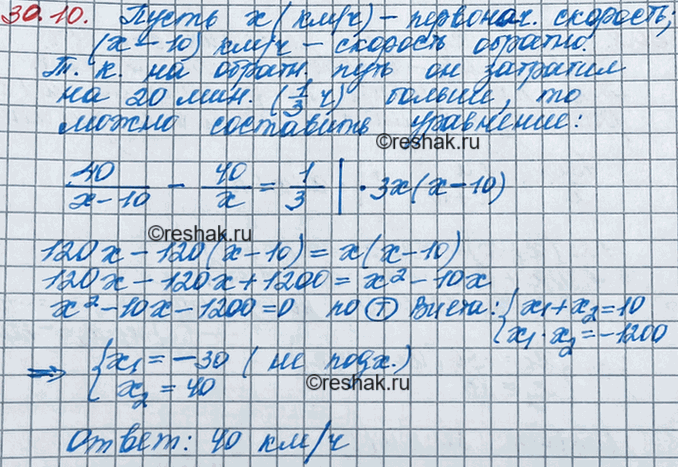 30.10. Пусть x (км/ч) – первонач. скорость;
(x – 10) км/ч – скорость обратно.
Т. к. на обратн. путь он затратил
на 20 мин. (1/3 ч) больше, то
можно составить уравнение:
©reshak.ru
40/(x-10) - 40/x = 1/3 | · 3x(x-10)
©reshak.ru
120x - 120(x-10) = x(x-10)
120x - 120x + 1200 = x² - 10x
x² - 10x - 1200 = 0 по Т Виета: { x₁ + x₂ = 10
x₁ · x₂ = -1200
⇒ { x₁ = -30 ( не подх.)
x₂ = 40
©reshak.ru
Ответ: 40 км/ч